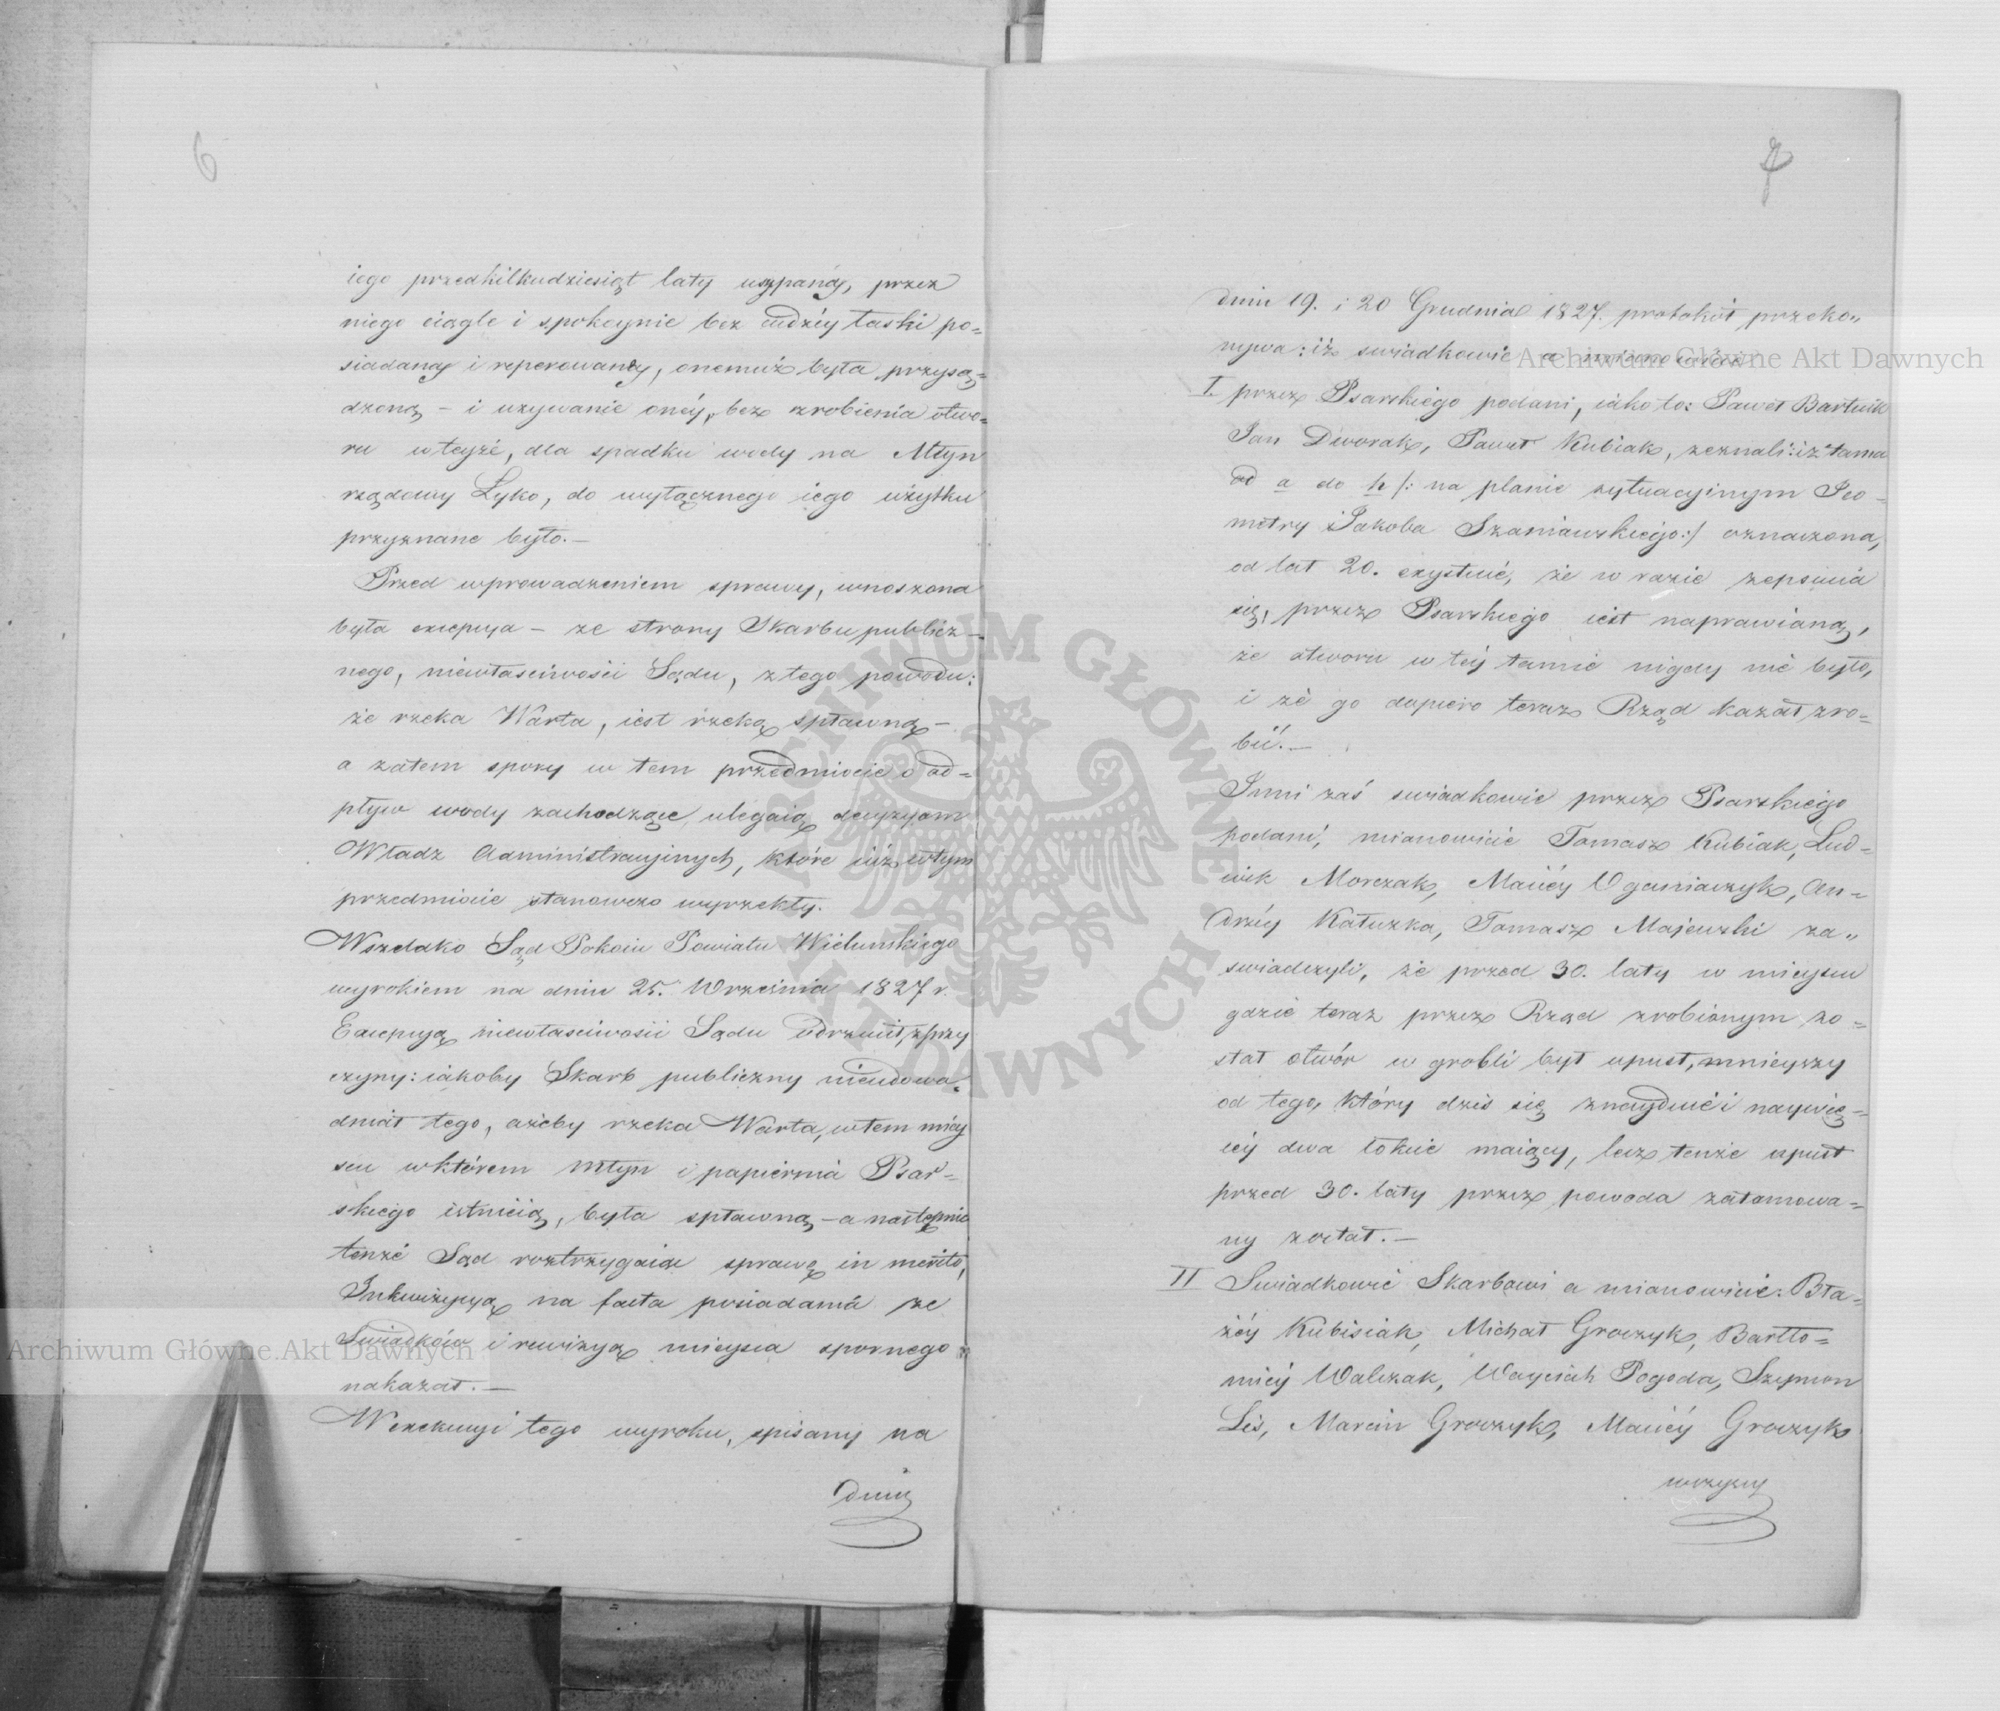 6
iego przedkilkudziesiąt laty usypanéy, przez
niego ciągle i spokoynie bez cudzéy łaski po=
siadanéy i reperowanéy, onemuż była przysą=
dzoną – i używanie onéy, bez zrobienia otwo=
ru w teyże, dla spadku wody na Młyn
rządowy Łyko, do wyłącznego iego użytku
przyznane było. –
Przed wprowadzeniem sprawy, wnoszona
była excepcya – ze strony Skarbu publicz=
nego, niewłaściwości Sądu, z tego powodu:
że rzeka Warta, iest rzeką spławną –
a zatem spory w tem przedmiocie o od=
pływ wody zachodzące, ulegaią decyzyom
Władz Administracyjnych, które iuż wtym
przedmiocie stanowczo wyrzekły.
Wszelako Sąd Pokoiu Powiatu Wieluńskiego
wyrokiem na dniu 25. Września 1827 r.
Excepcyą niewłaściwości Sądu odrzucił, z przy
czyny: iakoby Skarb publiczny nieudowo=
dniał tego, ażeby rzeka Warta, w tem miéy
scu w którem Młyn i papiernia Psar=
skiego istnieią, była spławną – a następnie
tenże Sąd roztrzygaiąc sprawę in merito,
Inkwizycyą na facta posiadania ze
Swiadków i rewizyą mieysca spornego
nakazał. –
W exekucyi tego wyroku, spisany na
dniu
7
dniu 19. i 20 Grudnia 1827. protokół przeko„
nywa: iż swiadkowie a mianowicie:
I. przez Psarskiego podani, iako to: Paweł Bartnik
Jan Dworak, Paweł Kubiak, zeznali: iż tama
od a do h /: na planie sytuacyinym Jeo=
metry Jakoba Szaniawskiego :/ oznaczona,
od lat 20. exystuie, że w razie zepsucia
się, przez Psarskiego iest naprawianą,
że otworu w téy tamie nigdy nie było,
i że go dopiero teraz Rząd kazał zro=
bić. –
Inni zaś swiadkowie przez Psarskiego
podani, mianowicie Tomasz Kubiak, Lud=
wik Morczak, Maciéy Ogasiaczyk, An=
drzéy Katuzka, Tomasz Majewski za„
swiadczyli, że przed 30. laty w mieyscu
gdzie teraz przez Rząd zrobionym zo=
stał otwór w grobli był upust, mnieyszy
od tego, który dziś się znayduie i naywię=
céy dwa łokcie maiący, lecz tenże upust
przed 30. laty przez powoda zatamowa=
ny został. –
II Swiadkowie Skarbowi a mianowicie: Bła=
żéy Kubisiak, Michał Groczyk, Bartło=
miéy Walczak, Woyciech Pogoda, Szymon
Lis, Marcin Groczyk, Maciéy Groczyk
wszyscy
Archiwum Główne Akt Dawnych
Archiwum Główne Akt Dawnych
ARCHIWUM GŁÓWNE AKT DAWNYCH